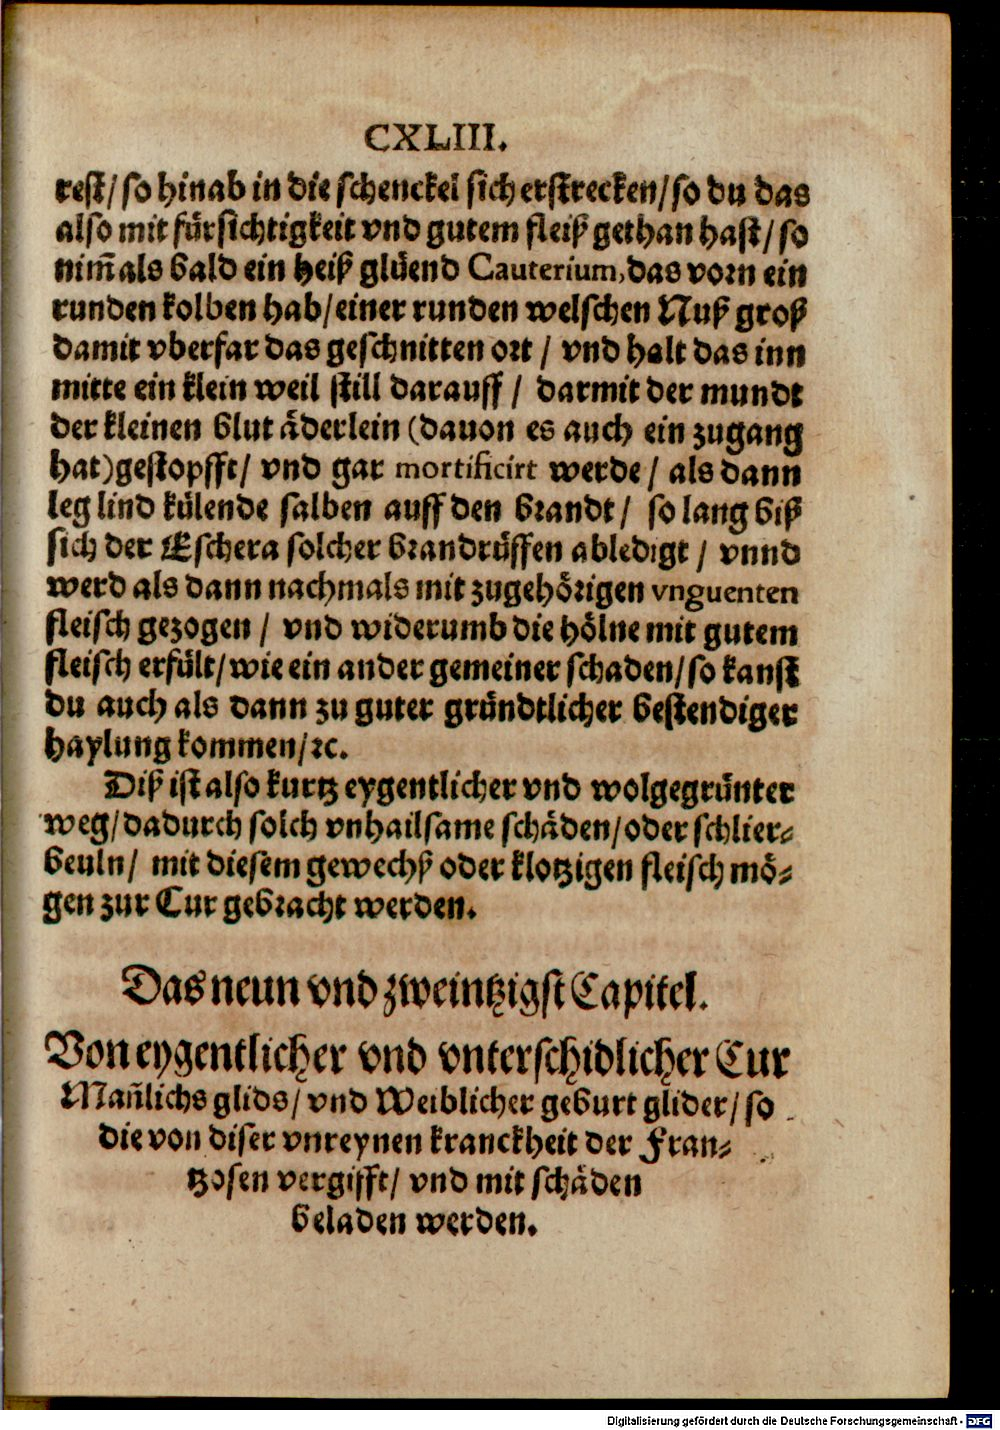 CXLIII.
rest/ so hinab in die schenckel sich erstrecken/ so du das
also mit fürsichtigkeit vnd gutem fleiß gethan hast/ so
nim̃ als bald ein heiß glüend Cauterium, das vorn ein
runden kolben hab/ einer runden welschen Nuß groß
damit vberfar das geschnitten ort / vnd halt das inn
mitte ein klein weil still darauff / darmit der mundt
der kleinen blut äderlein (dauon es auch ein zugang
hat) gestopfft/ vnd gar mortificirt werde / als dann
leg lind külende salben auff den brandt / so lang biß
sich der Eschera solcher brandrüffen abledigt / vnnd
werd als dann nachmals mit zugehörigen vnguenten
fleisch gezogen / vnd widerumb die hölne mit gutem
fleisch erfült/ wie ein ander gemeiner schaden/ so kanst
du auch als dann zu guter gründtlicher bestendiger
haylung kommen/ ꝛc.
Diß ist also kurtz eygentlicher vnd wolgegrünter
weg/ dadurch solch vnhailsame schäden/ oder schlier⸗
beuln/ mit diesem gewechß oder klotzigen fleisch mö⸗
gen zur Cur gebracht werden.
Das neun vnd zweintzigst Capitel.
Von eygentlicher vnd vnterschidlicher Cur
Mañlichs glids/ vnd Weiblicher geburt glider/ so
die von diser vnreynen kranckheit der Fran⸗
tzosen vergifft/ vnd mit schäden
beladen werden.
Digitalisierung gefördert durch die Deutsche Forschungsgemeinschaft - DFG